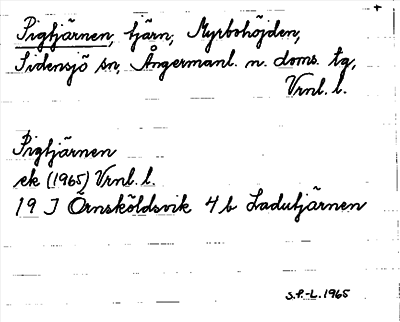 Pigtjärnen, tjärn, Myrbohöjden,
Sidensjö sn, Ångermanl. n. doms. tg,
Vrnl. l.
Pigtjärnen
ek (1965) Vrnl. l.
19 J Örnsköldsvik 4 b Ladutjärnen
S.F.-L. 1965